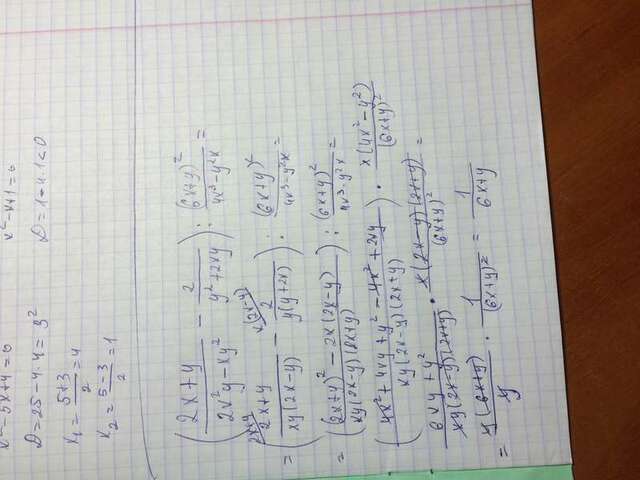 x² - 5x + 4 = 0
D = 25 - 4·4 = 3²
x₁ = (5+3)/2 = 4
x₂ = (5-3)/2 = 1
x² - x + 1 = 0
D = 1 - 4·1 < 0
((2x+y)/(2x²y - xy²) - 2/(y² + 2xy)) : (6x+y)²/(4x³ - y²x) =
= ((2x+y)(2x+y)/(xy(2x-y)) - 2 x(2x-y)/(y(y+2x))) : (6x+y)²/(4x³ - y²x) =
= (((2x+y)² - 2x(2x-y))/(xy(2x-y)(2x+y))) : (6x+y)²/(4x³ - y²x) =
((4x² + 4xy + y² - 4x² + 2xy)/(xy(2x-y)(2x+y))) · x(4x² - y²)/(6x+y)²
(6xy + y²)/(xy(2x-y)(2x+y)) · x(2x-y)(2x+y)/(6x+y)² =
= y(6x+y)/y · 1/(6x+y)² = 1/(6x+y)